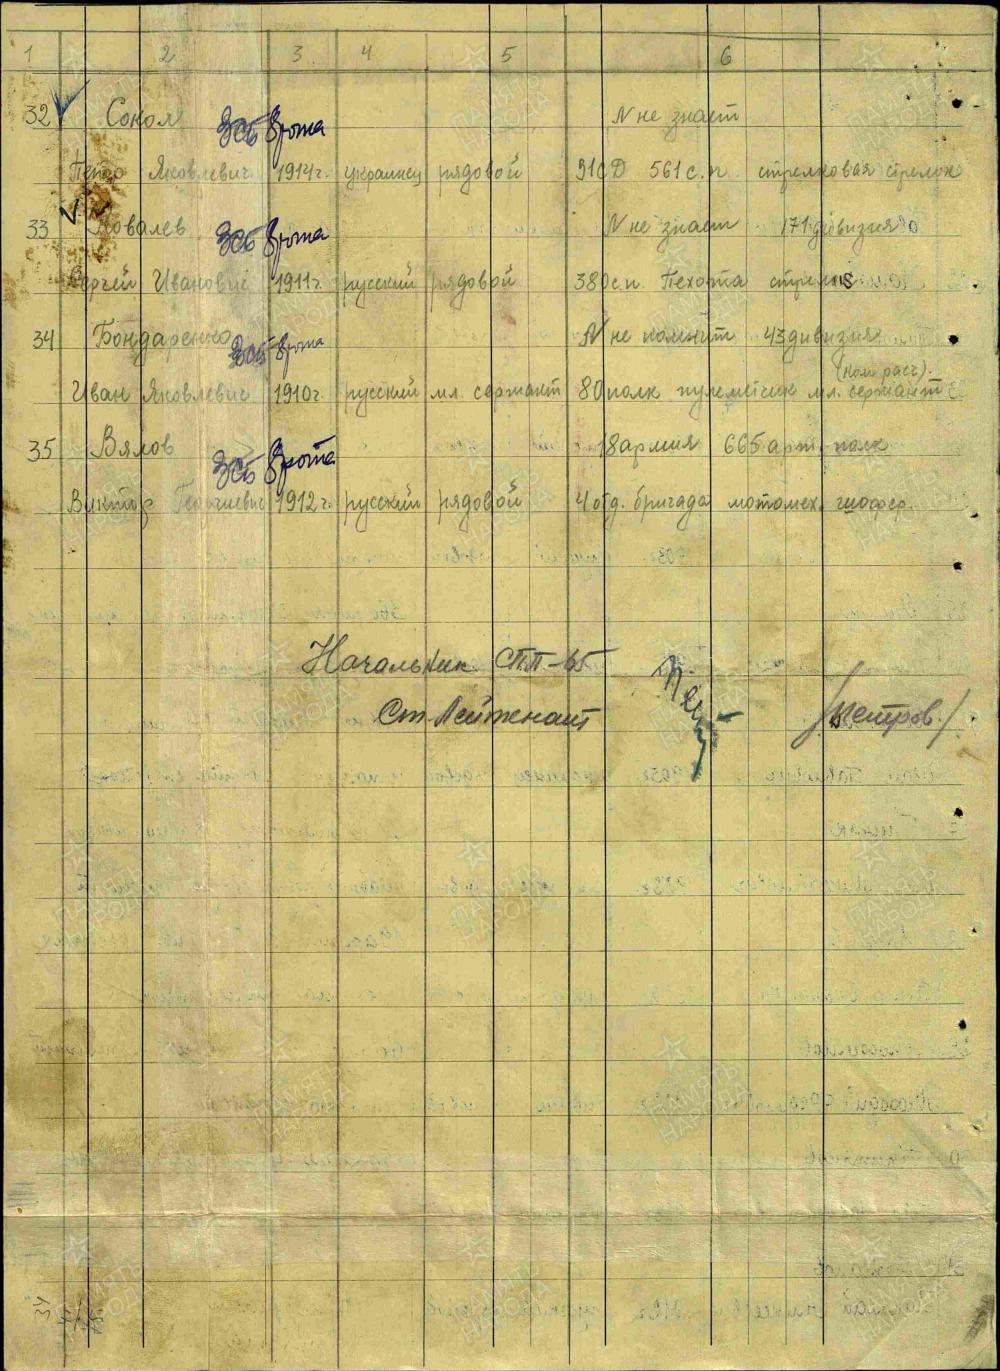 1 2 3 4 5 6
32 Сокол N не знает
3сб 8рота
Петро Яковлевич 1914г. украинец рядовой 91СД 561 с.п стрелковая стрелок
33 Ковалев N не знает 171 дивизия
3сб 8рота
Сергей Иванович 1911г. русский рядовой 380с.п. Пехота стрелок
34 Бондаренко N не помнит 43 дивизия
3сб 8рота
(ком расч).
Иван Яковлевич 1910г. русский мл. сержант 80 полк пулеметчик мл. сержант
35 Вялов 18 армия 665 арт. полк
3сб 8рота
Виктор Георгиевич 1912г. русский рядовой 4 отд. бригада мотомех. шофер.
Начальник СПП-65
Ст. Лейтенант /Петров./
34
ПАМЯТЬ НАРОДА